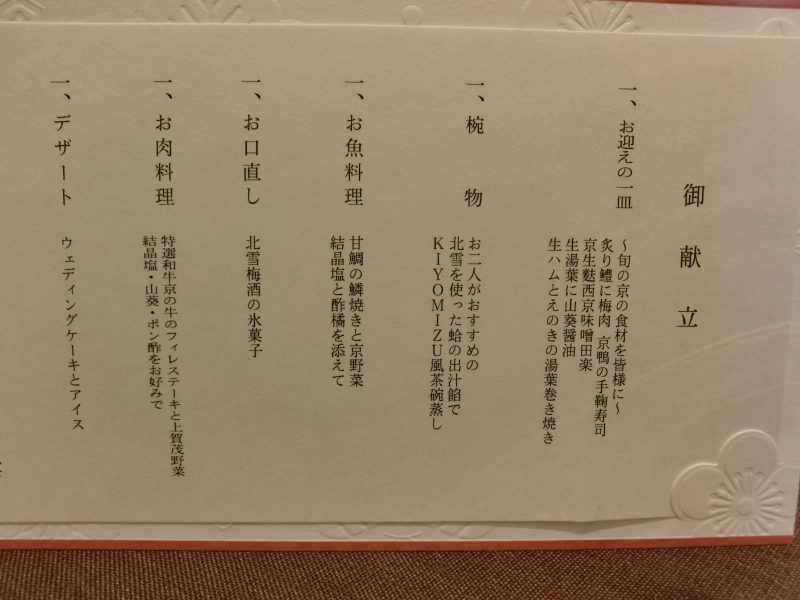 御献立
一、お迎えの一皿
～旬の京の食材を皆様に～
炙り鱧に梅肉 京鴨の手鞠寿司
京生麩西京味噌田楽
生湯葉に山葵醤油
生ハムとえのきの湯葉巻き焼き
一、椀 物
お二人がおすすめの
北雪を使った蛤の出汁餡で
KIYOMIZU風茶碗蒸し
一、お魚料理
甘鯛の鱗焼きと京野菜
結晶塩と酢橘を添えて
一、お口直し
北雪梅酒の氷菓子
一、お肉料理
特選和牛京の牛のフィレステーキと上賀茂野菜
結晶塩・山葵・ポン酢をお好みで
一、デザート
ウェディングケーキとアイス